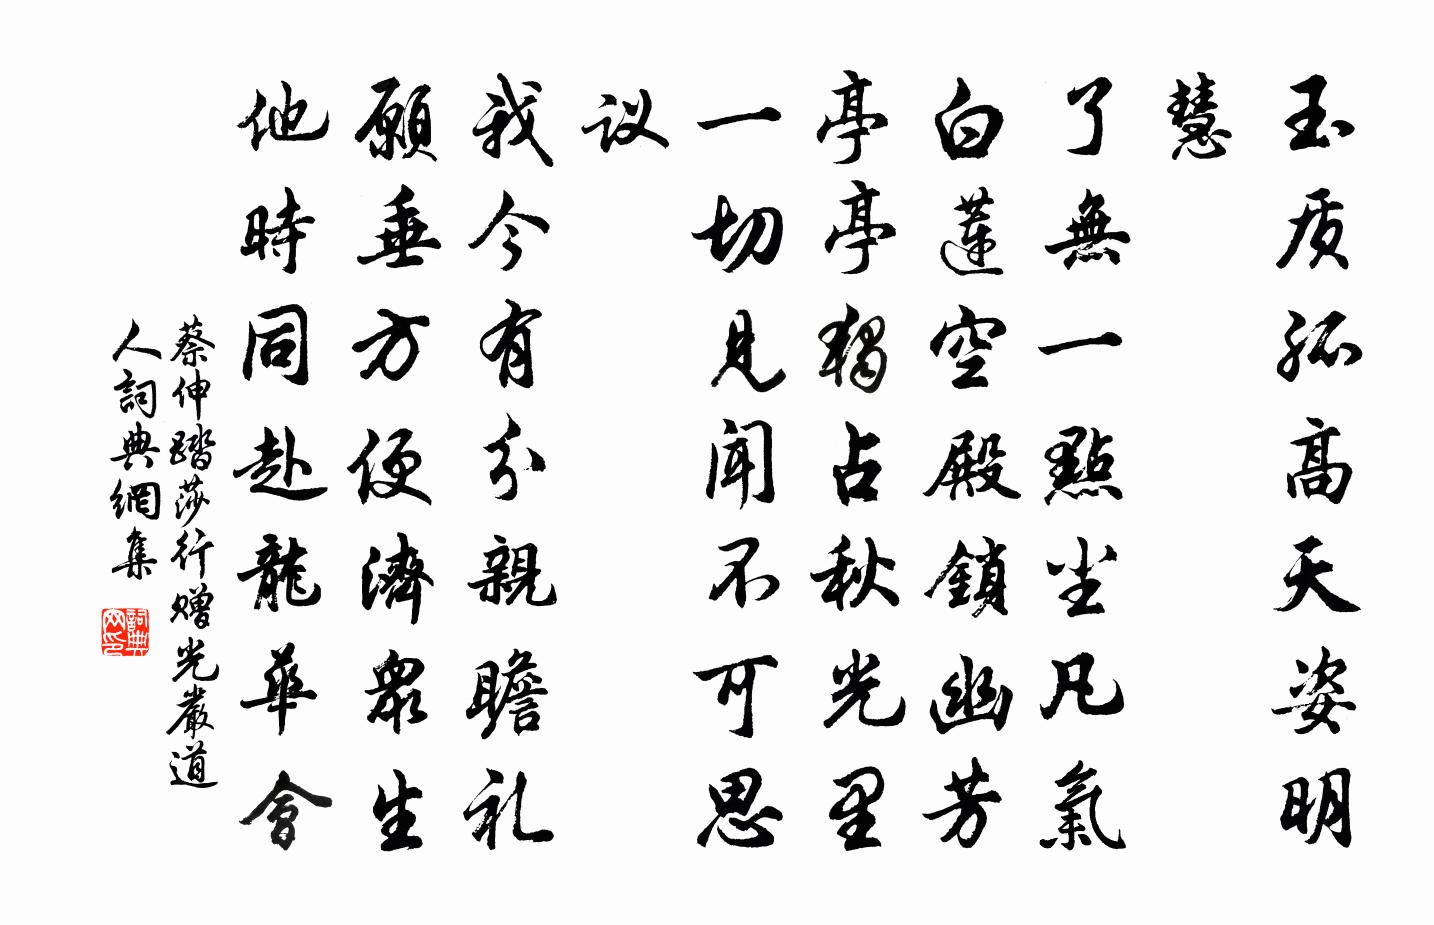 玉质孤高天姿明
慧
了無一點尘凡氣
白蓮空殿鎖幽芳
亭亭獨占秋光里
一切見闻不可思
议
我今有分親瞻礼
願垂方便濟眾生
他時同赴龍華會
蔡伸踏莎行赠光嚴道
人詞典網集
詞典
网印